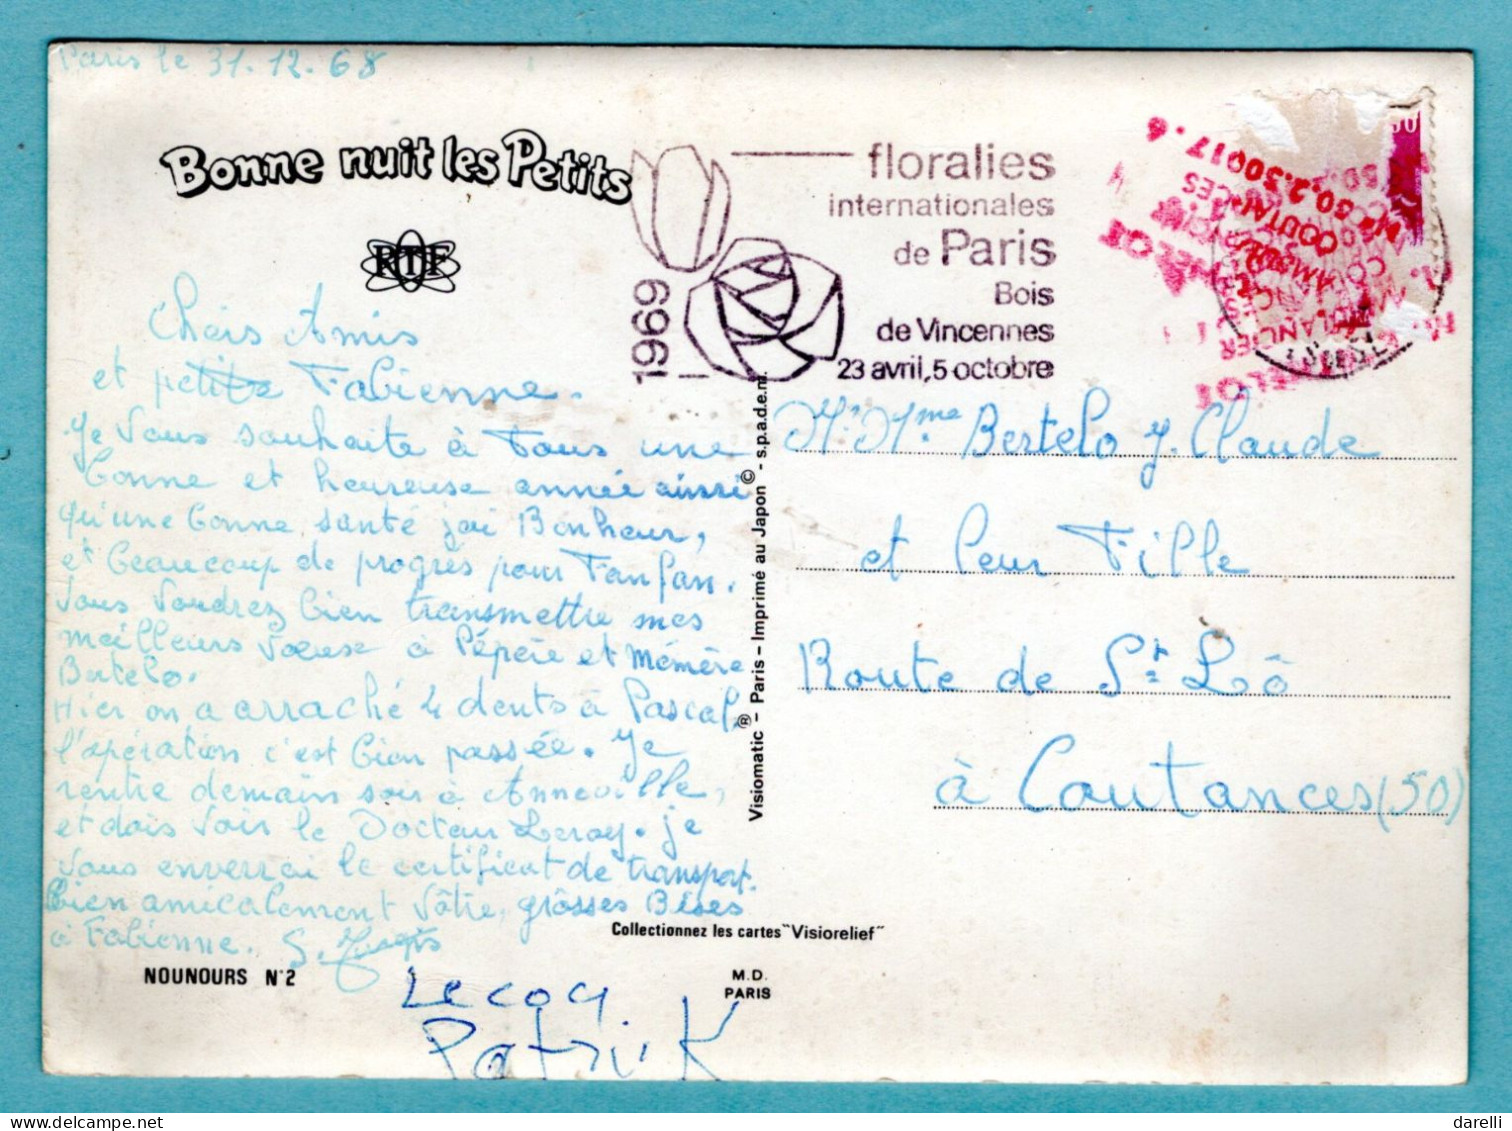 Paris le 31.12.68
Bonne nuit les Petits
RTF
Chers Amis
et petite Fabienne.
Je Vous souhaite à Tous une
bonne et heureuse année ainsi
qu'une bonne santé joi Bonheur,
et beaucoup de progrès pour Fanfan.
Vous Voudrez bien transmettre mes
meilleurs voeux à Pépère et Mémère
Bertelo.
Hier on a arraché 4 dents à Pascal,
l'opération c'est bien passée. Je
rentre demain soir à Anneville,
et dois voir le Docteur Leroy. je
vous enverrai le certificat de transport.
Bien amicalement Vôtre, grosses Bises
à Fabienne. S.
Lecoq
Patrick
NOUNOURS N°2
Collectionnez les cartes "Visiorelief"
M.D.
PARIS
Visiomatic ® - Paris - Imprimé au Japon © - s.p.a.d.e.m.
1969
floralies
internationales
de Paris
Bois
de Vincennes
23 avril, 5 octobre
M. Mme Bertelo J. Claude
et leur Fille
Route de St Lô
à Coutances (50)
darelli